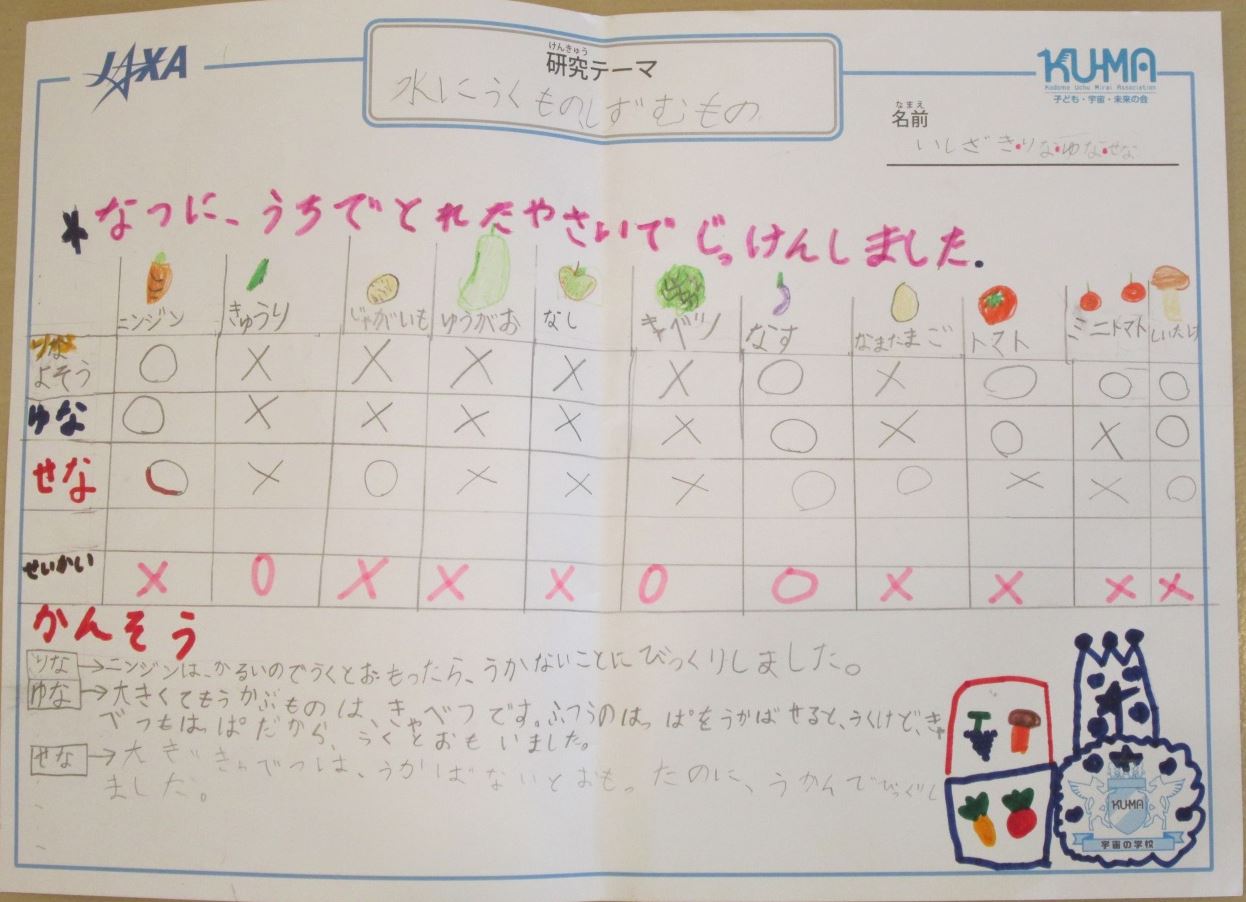 JAXA
けんきゅう
研究テーマ
水にうくもの、しずむもの
KU-MA
Kodomo Uchu Mirai Association
子ども・宇宙・未来の会
なまえ
名前
いしざき・りな・ゆな・せな
*なつに、うちでとれたやさいでじっけんしました.
ニンジン きゅうり じゃがいも ゆうがお なし キャベツ なす なまたまご トマト ミニトマト しいたけ
りなよそう ○ × × × × × ○ × ○ ○ ○
ゆな ○ × × × × × ○ × ○ × ○
せな ○ × ○ × × × ○ ○ × × ○
せいかい × ○ × × × ○ ○ × × × ×
かんそう
りな→ニンジンは、かるいのでうくとおもったら、うかないことにびっくりしました。
ゆな→大きくてもうかぶものは、きゃべつです。ふつうのはっぱをうかばせると、うくけど、きゃ
べつもはっぱだから、うくとおもいました。
せな→大きいきゃべつは、うかばないとおもったのに、うかんでびっくりし
ました。
KUMA
宇宙の学校